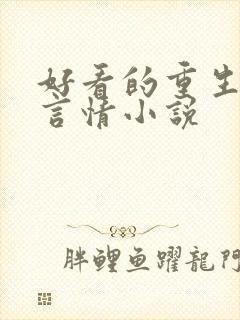 好看的重生
言情小說
胖鲤鱼躍龍門